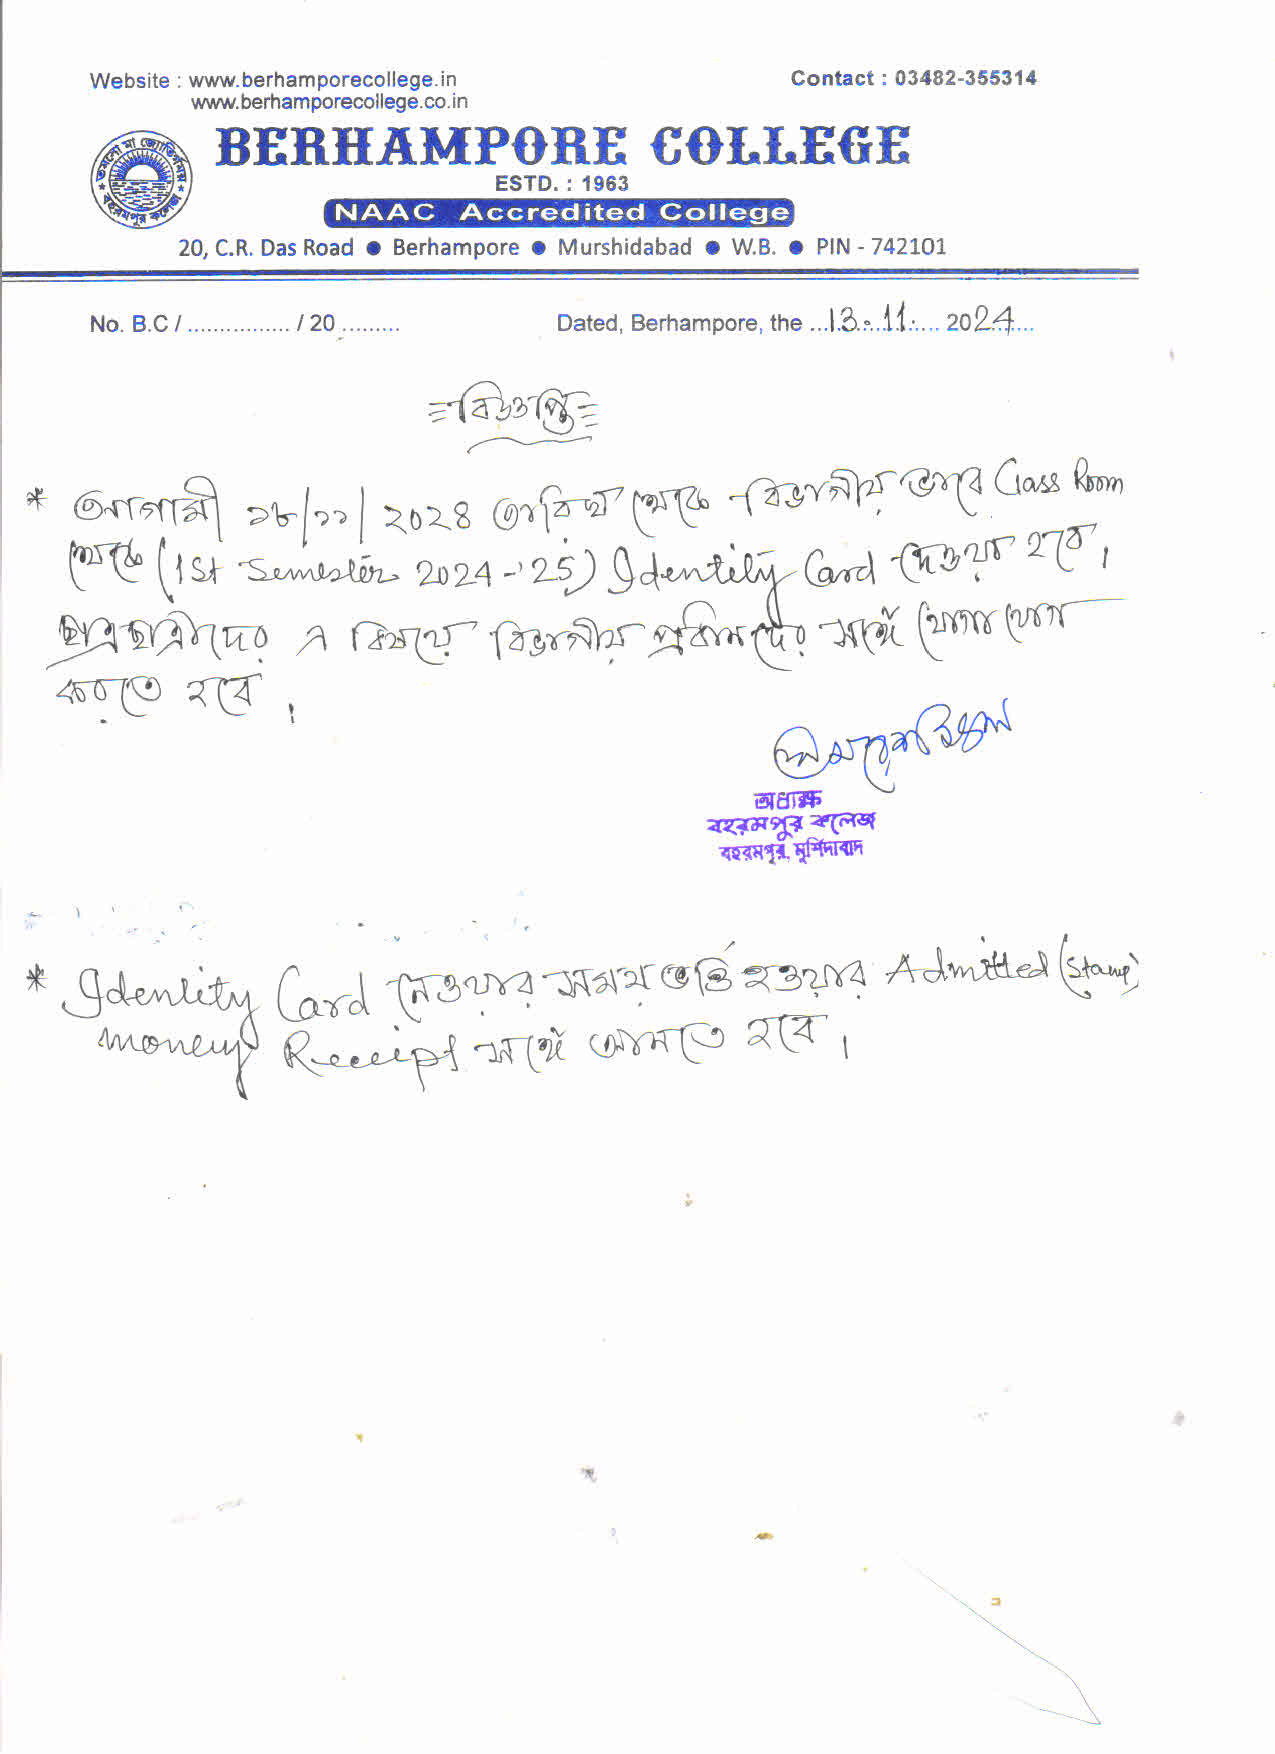 Website : www.berhamporecollege.in
Contact : 03482-355314
www.berhamporecollege.co.in
তমসো মা জ্যোতির্গময়
বহরমপুর কলেজ
BERHAMPORE COLLEGE
ESTD. : 1963
NAAC Accredited College
20, C.R. Das Road ● Berhampore ● Murshidabad ● W.B. ● PIN - 742101
No. B.C / ................ / 20 .........
Dated, Berhampore, the ...13.11.... 2024...
= বিজ্ঞপ্তি =
* আগামী ১৮/১১/২০২৪ তারিখ থেকে বিভাগীয় ভাবে Class Room
থেকে (1st Semester 2024-'25) Identity Card দেওয়া হবে।
ছাত্রছাত্রীদের এ বিষয়ে বিভাগীয় প্রধানদের সঙ্গে যোগাযোগ
করতে হবে।
অধ্যক্ষ
বহরমপুর কলেজ
বহরমপুর, মুর্শিদাবাদ
* Identity Card নেওয়ার সময় ভর্তি হওয়ার Admitted (Stamp)
money Receipt সঙ্গে আনতে হবে।